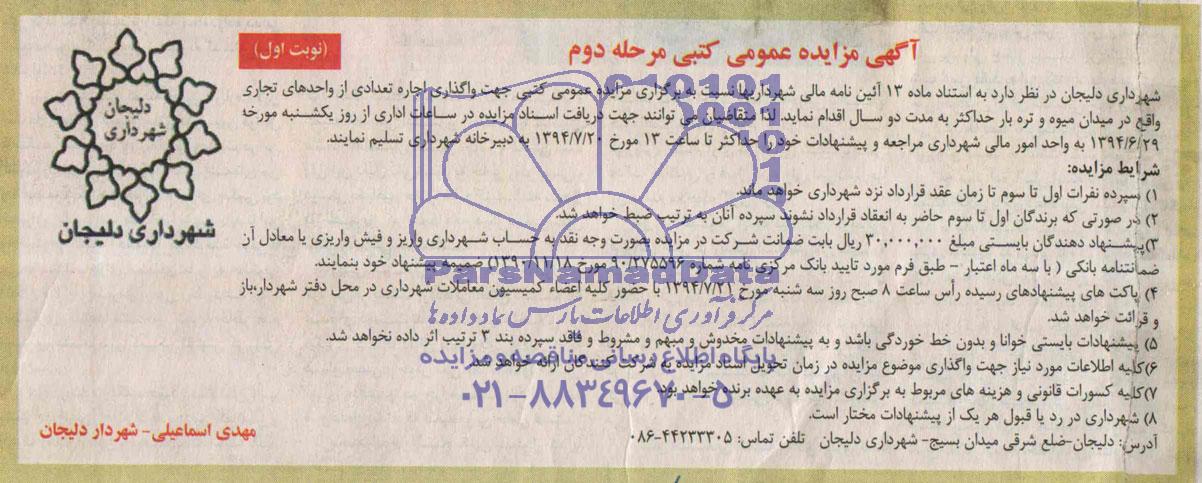 آگهی مزایده عمومی کتبی مرحله دوم
(نوبت اول)
دلیجان
شهرداری
شهرداری دلیجان
شهرداری دلیجان در نظر دارد به استناد ماده ۱۳ آئین نامه مالی شهرداریها نسبت به برگزاری مزایده عمومی کتبی جهت واگذاری اجاره تعدادی از واحدهای تجاری
واقع در میدان میوه و تره بار حداکثر به مدت دو سال اقدام نماید. لذا متقاضیان می توانند جهت دریافت اسناد مزایده در ساعات اداری از روز یکشنبه مورخه
۱۳۹۴/۶/۲۹ به واحد امور مالی شهرداری مراجعه و پیشنهادات خود را حداکثر تا ساعت ۱۳ مورخ ۱۳۹۴/۷/۲۰ به دبیرخانه شهرداری تسلیم نمایند.
شرایط مزایده:
۱) سپرده نفرات اول تا سوم تا زمان عقد قرارداد نزد شهرداری خواهد ماند.
۲) در صورتی که برندگان اول تا سوم حاضر به انعقاد قرارداد نشوند سپرده آنان به ترتیب ضبط خواهد شد.
۳)پیشنهاد دهندگان بایستی مبلغ ۳۰,۰۰۰,۰۰۰ ریال بابت ضمانت شرکت در مزایده بصورت وجه نقد به حساب شهرداری واریز و فیش واریزی یا معادل آن
ضمانتنامه بانکی ( با سه ماه اعتبار - طبق فرم مورد تایید بانک مرکزی نامه شماره ۹۰/۲۷۵۵۹۶ مورخ ۱۳۹۰/۱۱/۱۸) ضمیمه پیشنهاد خود بنمایند.
۴) پاکت های پیشنهادهای رسیده رأس ساعت ۸ صبح روز سه شنبه مورخ ۱۳۹۴/۷/۲۱ با حضور کلیه اعضاء کمیسیون معاملات شهرداری در محل دفتر شهردار،باز
و قرائت خواهد شد.
۵) پیشنهادات بایستی خوانا و بدون خط خوردگی باشد و به پیشنهادات مخدوش و مبهم و مشروط و فاقد سپرده بند ۳ ترتیب اثر داده نخواهد شد.
۶)کلیه اطلاعات مورد نیاز جهت واگذاری موضوع مزایده در زمان تحویل اسناد مزایده به شرکت کنندگان ارائه خواهد شد.
۷)کلیه کسورات قانونی و هزینه های مربوط به برگزاری مزایده به عهده برنده خواهد بود.
۸) شهرداری در رد یا قبول هر یک از پیشنهادات مختار است.
آدرس: دلیجان-ضلع شرقی میدان بسیج- شهرداری دلیجان تلفن تماس: ۰۸۶-۴۴۲۳۳۳۰۵
مهدی اسماعیلی- شهردار دلیجان
ParsNamadData
مرکز فرآوری اطلاعات پارس نماد داده ها
پایگاه اطلاع رسانی مناقصه و مزایده
۰۲۱-۸۸۳۴۹۶۷۰-۵